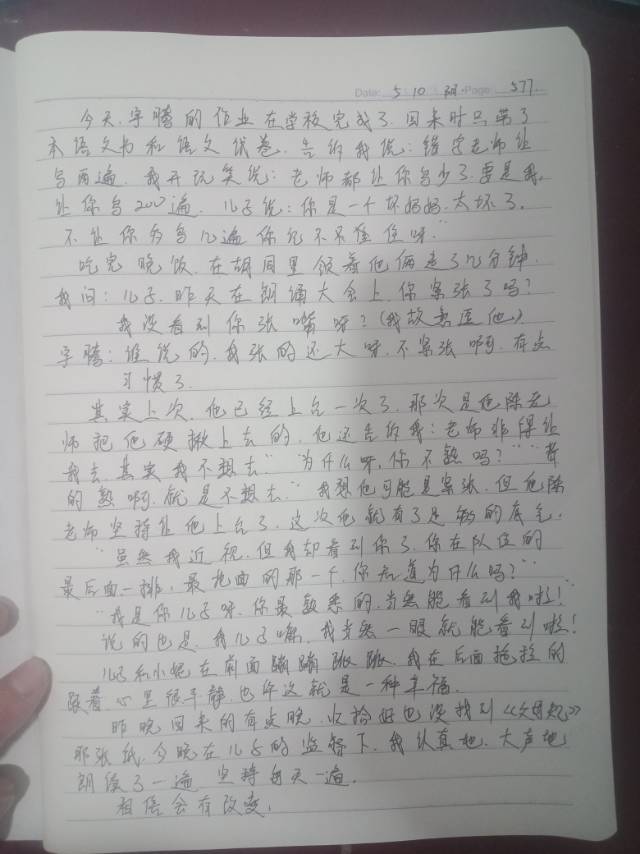 Date: 5.10 阴 Page: 577
今天,宇腾的作业在学校完成了,回来时只带了
本语文书和语文试卷,告诉我说:错字老师让
写两遍,我开玩笑说:老师都让你写少了,要是我,
让你写200遍,儿子说:你是一个坏妈妈,太坏了,
不让你多写几遍你记不住呀."
吃完晚饭,在胡同里领着他俩走了几分钟,
我问:儿子,昨天在朗诵大会上,你紧张了吗?
我没看到你张嘴呀?(我故意逗他)
宇腾:谁说的,我张的还大呀,不紧张啊,有点
习惯了.
其实上次,他已经上台一次了,那次是他陈老
师把他硬揪上去的,他还告诉我:老师非得让
我去其实我不想去""为什么呀,你不熟吗?""背
的熟啊,就是不想去."我想他可能是紧张,但他陈
老师坚持让他上台了,这次他就有了足够的底气.
"虽然我近视,但我却看到你了,你在队伍的
最后面一排,最北面的那一个,你知道为什么吗?"
"我是你儿子呀,你最熟悉的,当然能看到我啦!
说的也是,我儿子嘛,我当然一眼就能看到啦!
儿子和小妮在前面蹦蹦跳跳,我在后面拖拉的
跟着,心里很平静,也许这就是一种幸福.
昨晚回来的有点晚,收拾好也没找到《父母规》
那张纸,今晚在儿子的监督下,我认真地,大声地
朗读了一遍,坚持每天一遍.
相信会有改变.